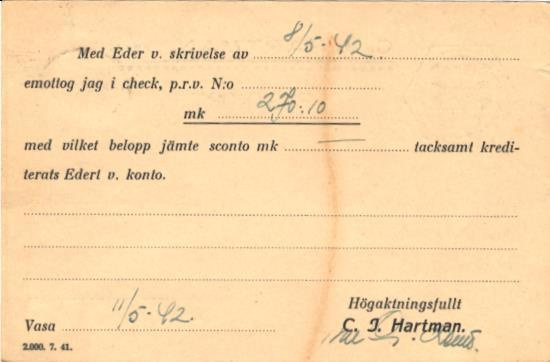 Med Eder v. skrivelse av 8/5-42
emottog jag i check, p.r.v. N:o
mk 270:10
med vilket belopp jämte sconto mk — tacksamt kredi-
terats Edert v. konto.
Högaktningsfullt
Vasa 11/5-42. C. J. Hartman.
2.000. 7. 41.